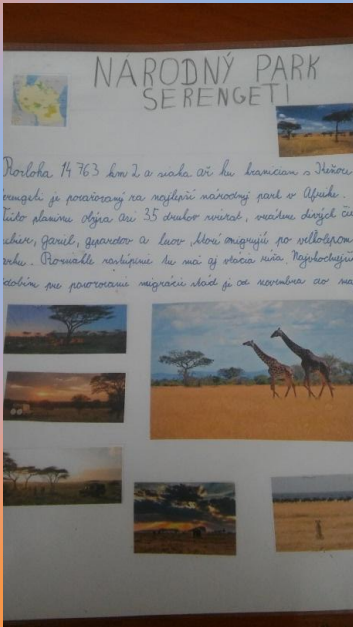 NÁRODNÝ PARK
SERENGETI
Rozloha 14 763 km 2 a siaha až ku hraniciam s Keňou
erengeti je považovaný za najlepší národný park v Afrike.
Túto planinu obýva asi 35 druhov zvierat, vrátane divých
gaziel, gepardov a levov, ktoré migrujú po veľkolepom
arku. Rozsiahle zastúpenie tu má aj vtáčia ríša. Najvhodnejším
obdobím pre pozorovanie migrácie stád je od novembra do